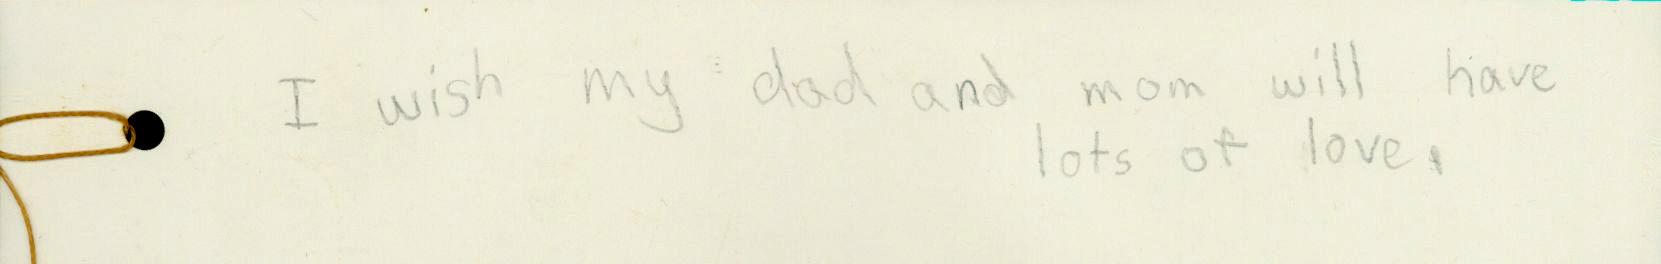 I wish my dad and mom will have
lots of love.